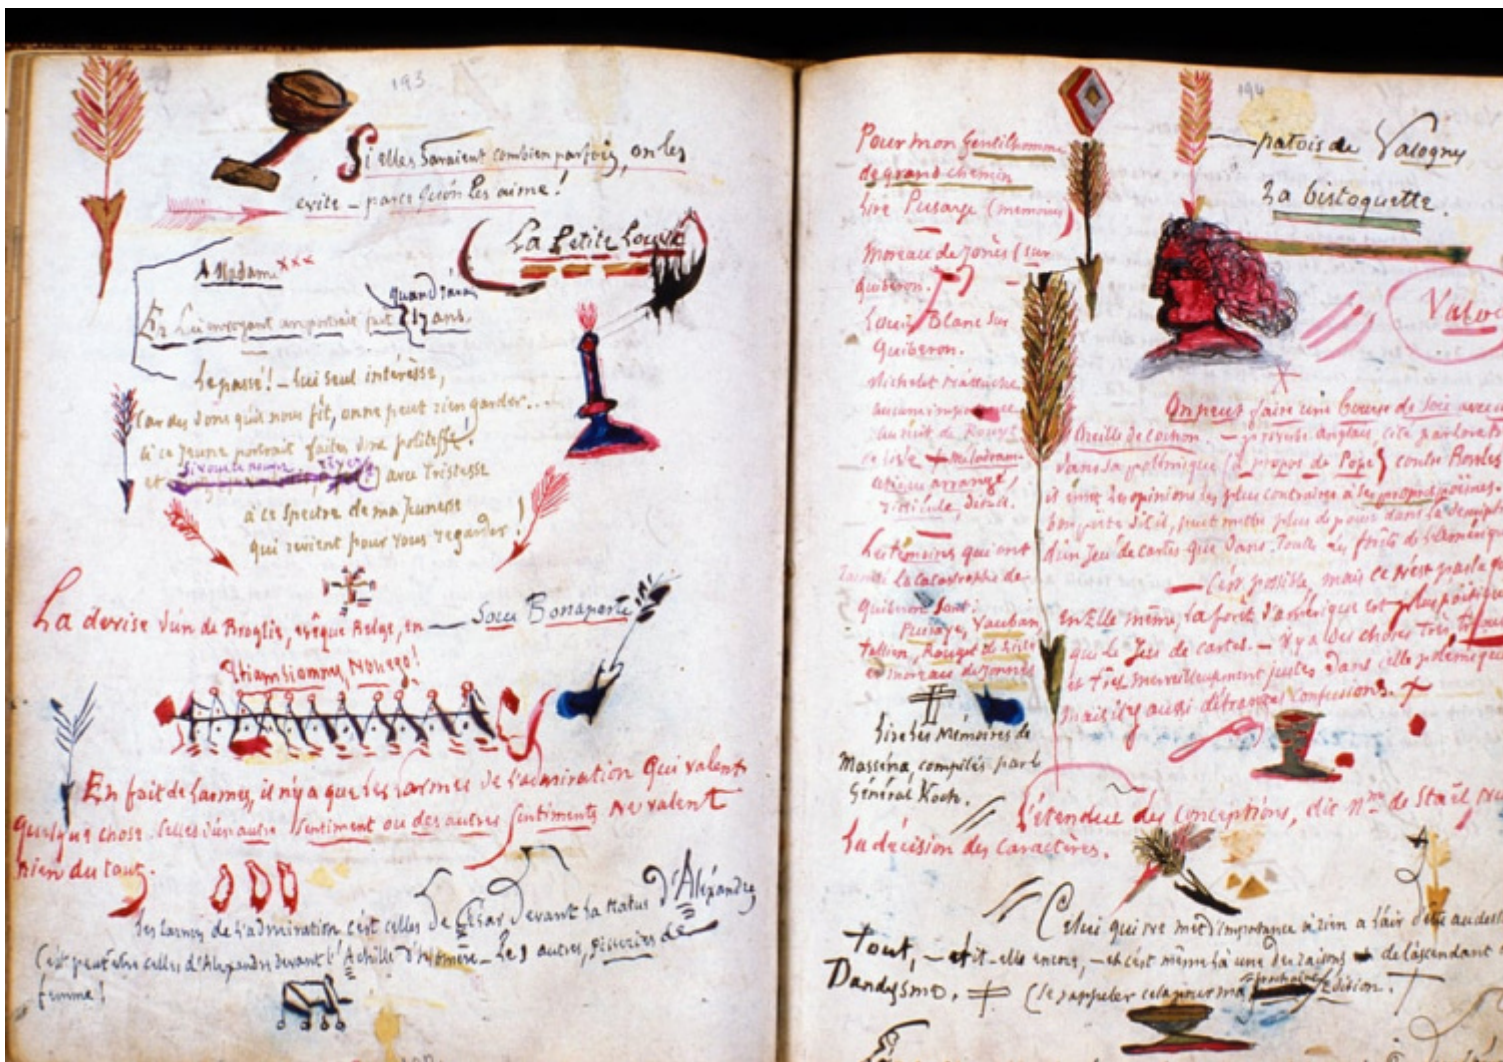 193
Si elles savaient combien parfois, on les
évite – parce qu'on les aime !
La Petite Louve
A Madame xxx
quand j'avais
En lui envoyant un portrait fait 17 ans.
Le passé ! – lui seul intéresse,
Car des dons qu'il nous fit, on ne peut rien garder...
à ce jeune portrait faites une politesse !
et avec Tristesse
à ce Spectre de ma Jeunesse
qui revient pour vous regarder !
La devise d'un de Broglie, évêque Belge, en – Sous Bonaparte
Etiamsi omnes, Non ego !
En fait de larmes, il n'y a que les larmes de l'admiration qui valent
quelque chose. Celles d'un autre sentiment ou des autres sentiments ne valent
rien du tout.
Les larmes de l'admiration c'est celles de César devant la statue d'Alexandre
C'est peut être celles d'Alexandre devant l'Achille d'Homère – Les autres, pisseries de
femme !
194
Pour mon Gentilhomme
de grand chemin
lire Puisaye (mémoires)
Moreau de Jonès (sur
Quiberon.
Louis Blanc sur
Quiberon.
Michelet n'attache
aucune importance
au récit de Rouget
de Lisle Mélodrame
arrangé,
ridicule, dit-il.
Les témoins qui ont
la catastrophe de
Quiberon sont
Puisaye, Vauban
Tallien, Rouget de Lisle
et Moreau de Jonnès
lire les Mémoires de
Masséna, compilés par l
Général Koch.
patois de Valognes
La bistoquette.
Valo
On peut faire une bourse de soie avec u
Oreille de cochon. – proverbe anglais, cité par lord
dans sa polémique (à propos de Pope) contre Bowles
et émet les opinions les plus contraires à ses propres poèmes.
bon poète dit il, peut mettre plus de poésie dans la
d'un Jeu de cartes que dans toutes les forêts de l'Amérique
– C'est possible, mais ce n'est pas la qu
En Elle même, la forêt d'Amérique est plus poétique
que le Jeu de cartes. – Il y a des choses très,
et très merveilleusement justes dans cette polémique
mais il y a aussi d'étranges confusions.
L'étendue des conceptions, dit Mme de Staël
la décision des caractères.
Celui qui ne met d'importance à rien a l'air d'être au dess
Tout, – dit-elle encore, – et c'est même là une des raisons de l'ascendant
prochaine
Dandysme. (Se rappeler cela pour ma édition.